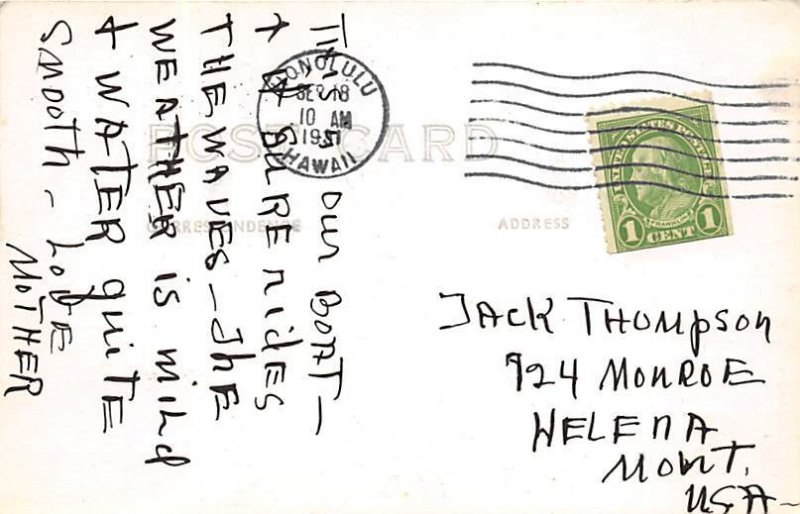 This is our Boat—
+ it sure rides
THE WAVES—The
WEATHER is mild
+ WATER quite
SMOOTH — LovE
MOTHER
POST CARD
CORRESPONDENCE
ADDRESS
HONOLULU
10 AM
HAWAII
UNITED STATES POSTAGE
FRANKLIN
1 CENT 1
JACK THOMPSON
924 MONROE
HELENA
MONT.
USA—